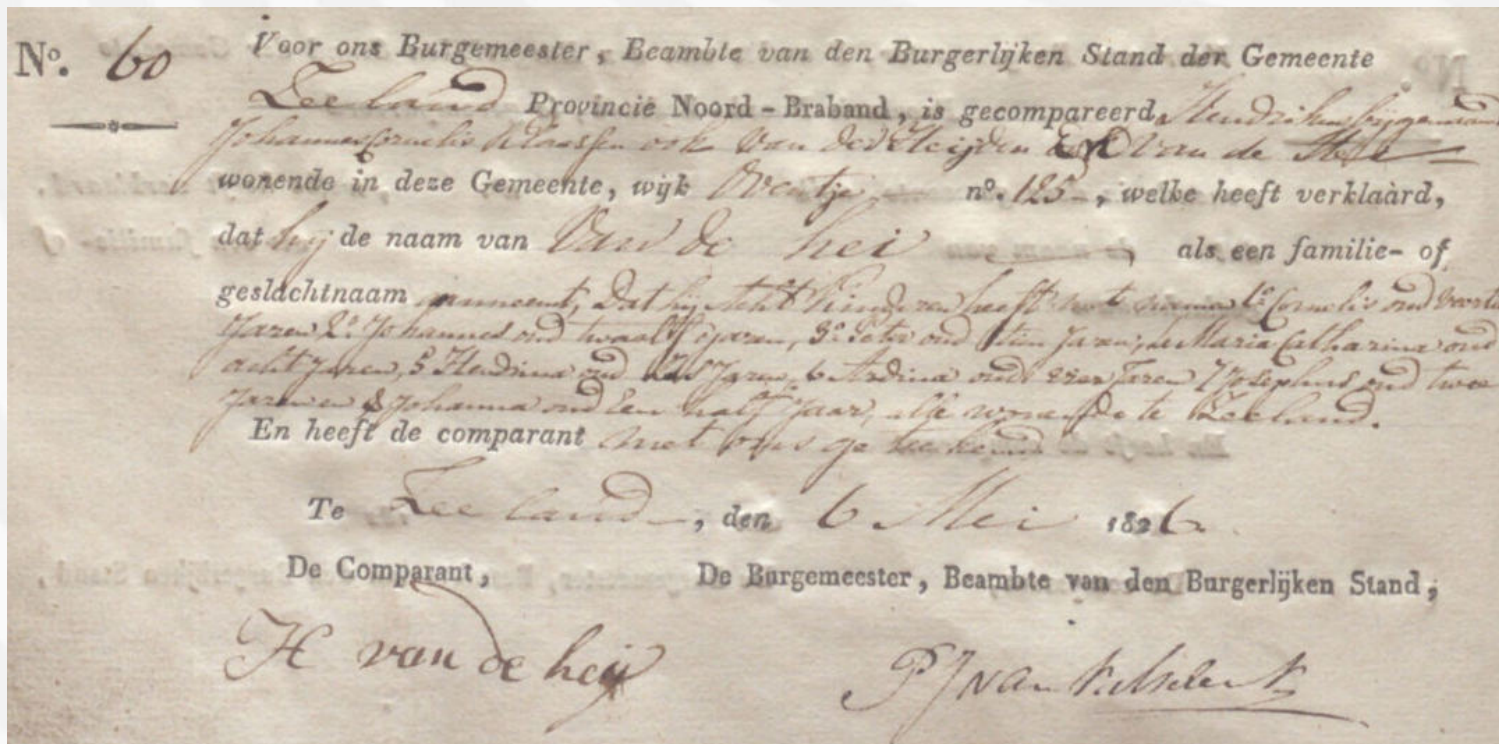 N°. 60
Voor ons Burgemeester, Beambte van den Burgerlijken Stand der Gemeente
Zeeland Provincie Noord-Braband, is gecompareerd Hendrikus bijgenaamd
Johannes Cornelis Klaassen ook van der Heijden van de
wonende in deze Gemeente, wijk Oventje n°. 125, welke heeft verklaard,
dat hij de naam van Van de hei als een familie- of
geslachtnaam aanneemt, Dat hij Acht Kinderen heeft met name 1e Cornelis oud veertien
Jaren 2e Johannes oud twaalf jaren, 3e Peter oud tien Jaren, 4 Maria Catharina oud
acht Jaren, 5 Hendrina oud Jaren, 6 Ardina oud vier Jaren 7 Josephus oud twee
Jaren en 8 Johanna oud Een half Jaar, alle wonende te Zeeland.
En heeft de comparant met ons geteekend
Te Zeeland, den 6 Mei 1826
De Comparant, De Burgemeester, Beambte van den Burgerlijken Stand,
H van de heij P J van